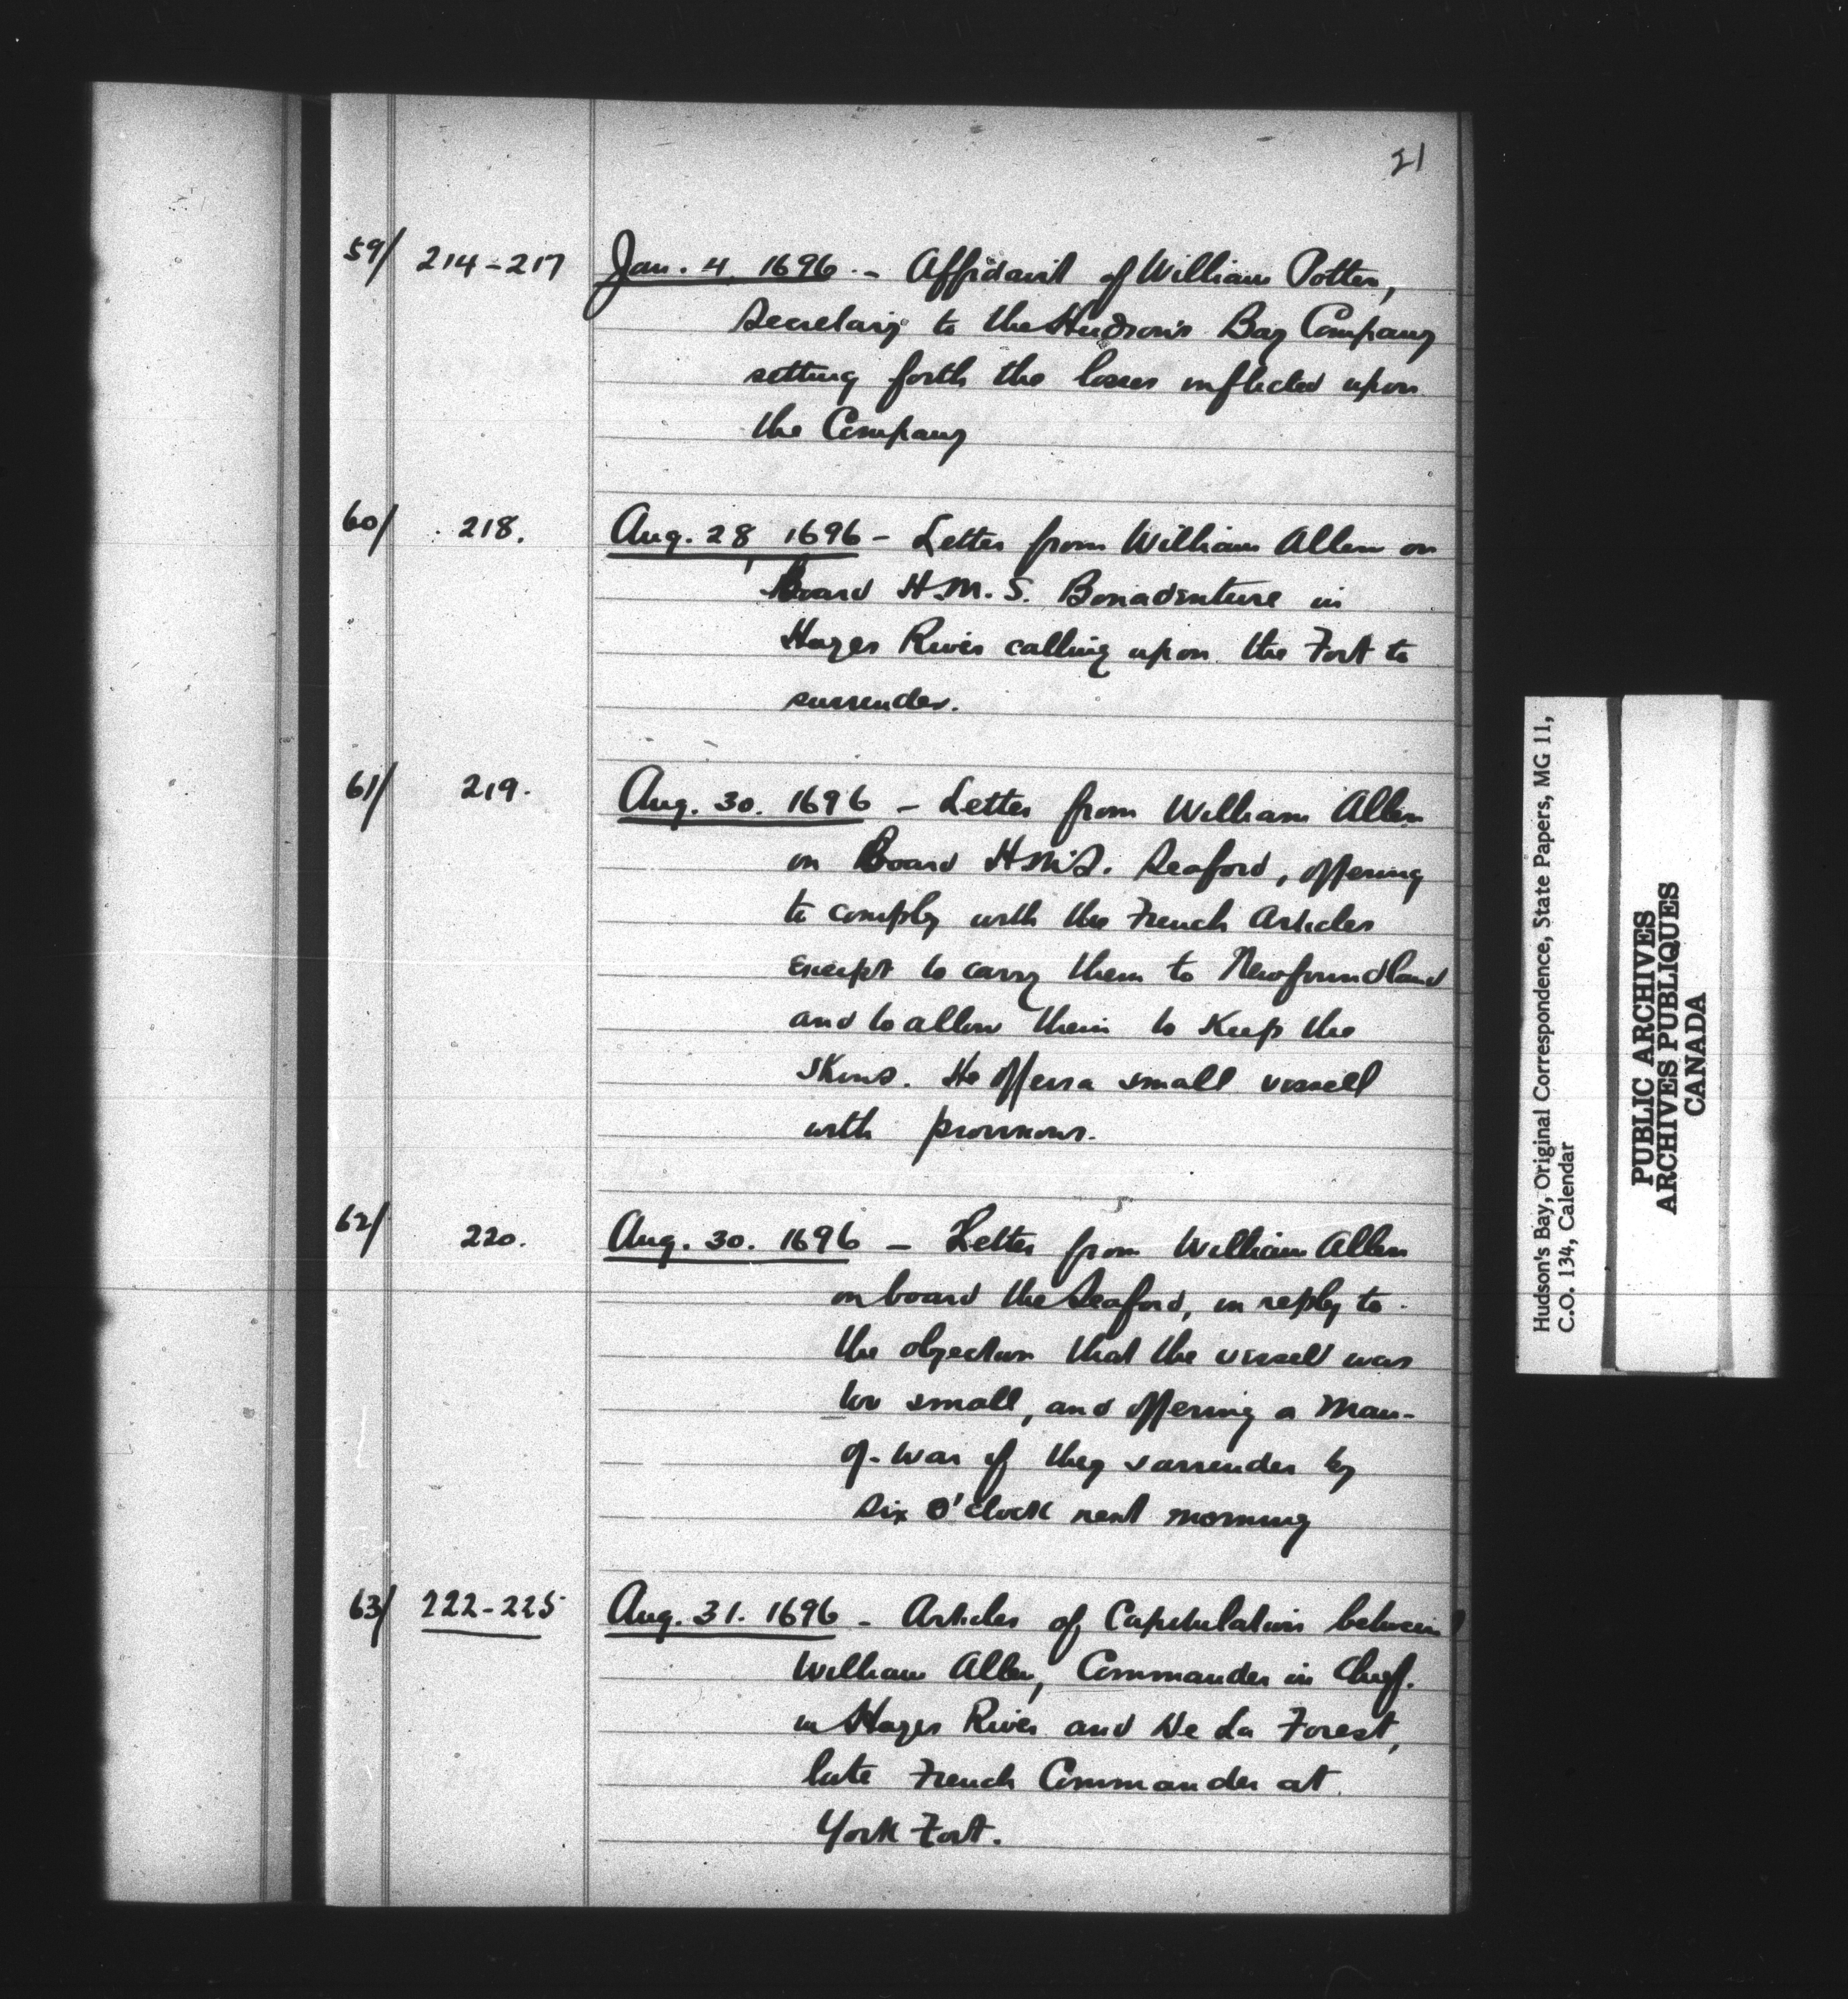 21
59/ 214-217 Jan. 4 1696. - Affidavit of William Potter,
Secretary to the Hudson's Bay Company
setting forth the losses inflicted upon
the Company
60/ 218. Aug. 28, 1696 - Letter from William Allen on
Board H.M.S. Bonadventure in
Hayes River calling upon the Fort to
surrender.
61/ 219. Aug. 30. 1696 - Letter from William Allen
on Board H.M.S. Seaford, offering
to comply with the French Articles
except to carry them to Newfoundland
and to allow them to keep the
skins. He offers a small vessell
with provisions.
62/ 220. Aug. 30. 1696 - Letter from William Allen
on board the Seaford, in reply to
the objection that the vissell was
too small, and offering a Man-
of-war if they surrender by
six O'Clock next morning
63/ 222-225 Aug. 31. 1696 - Articles of Capitulation between
William Allen, Commander in Chief.
in Hayes River and De La Forest,
late French Commander at
York Fort.
Hudson's Bay, Original Correspondence, State Papers, MG 11,
C.O. 134, Calendar
PUBLIC ARCHIVES
ARCHIVES PUBLIQUES
CANADA